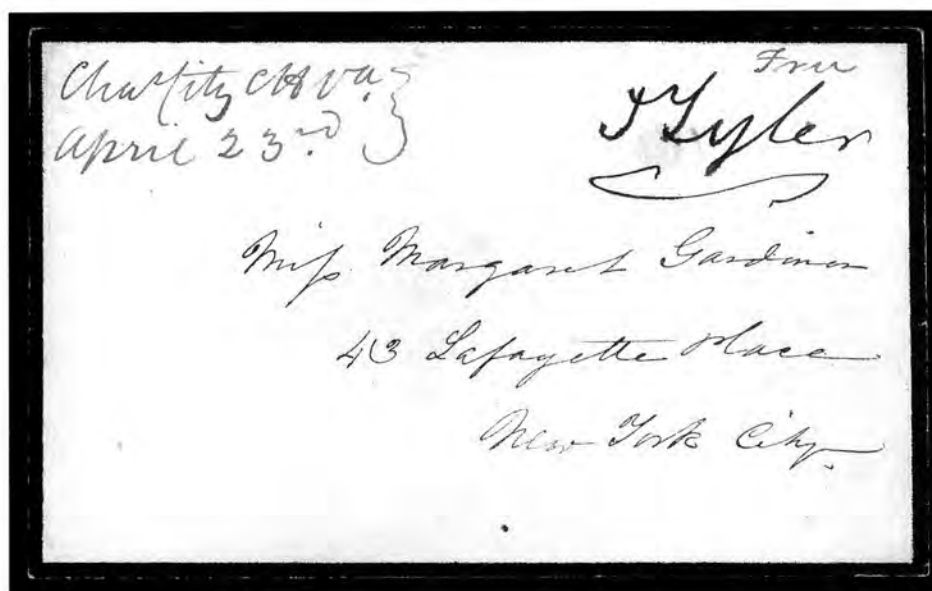 Cha^s City CH Va.
April 23rd.
Free
J Tyler
Miss Margaret Gardiner
43 Lafayette Place
New York City.